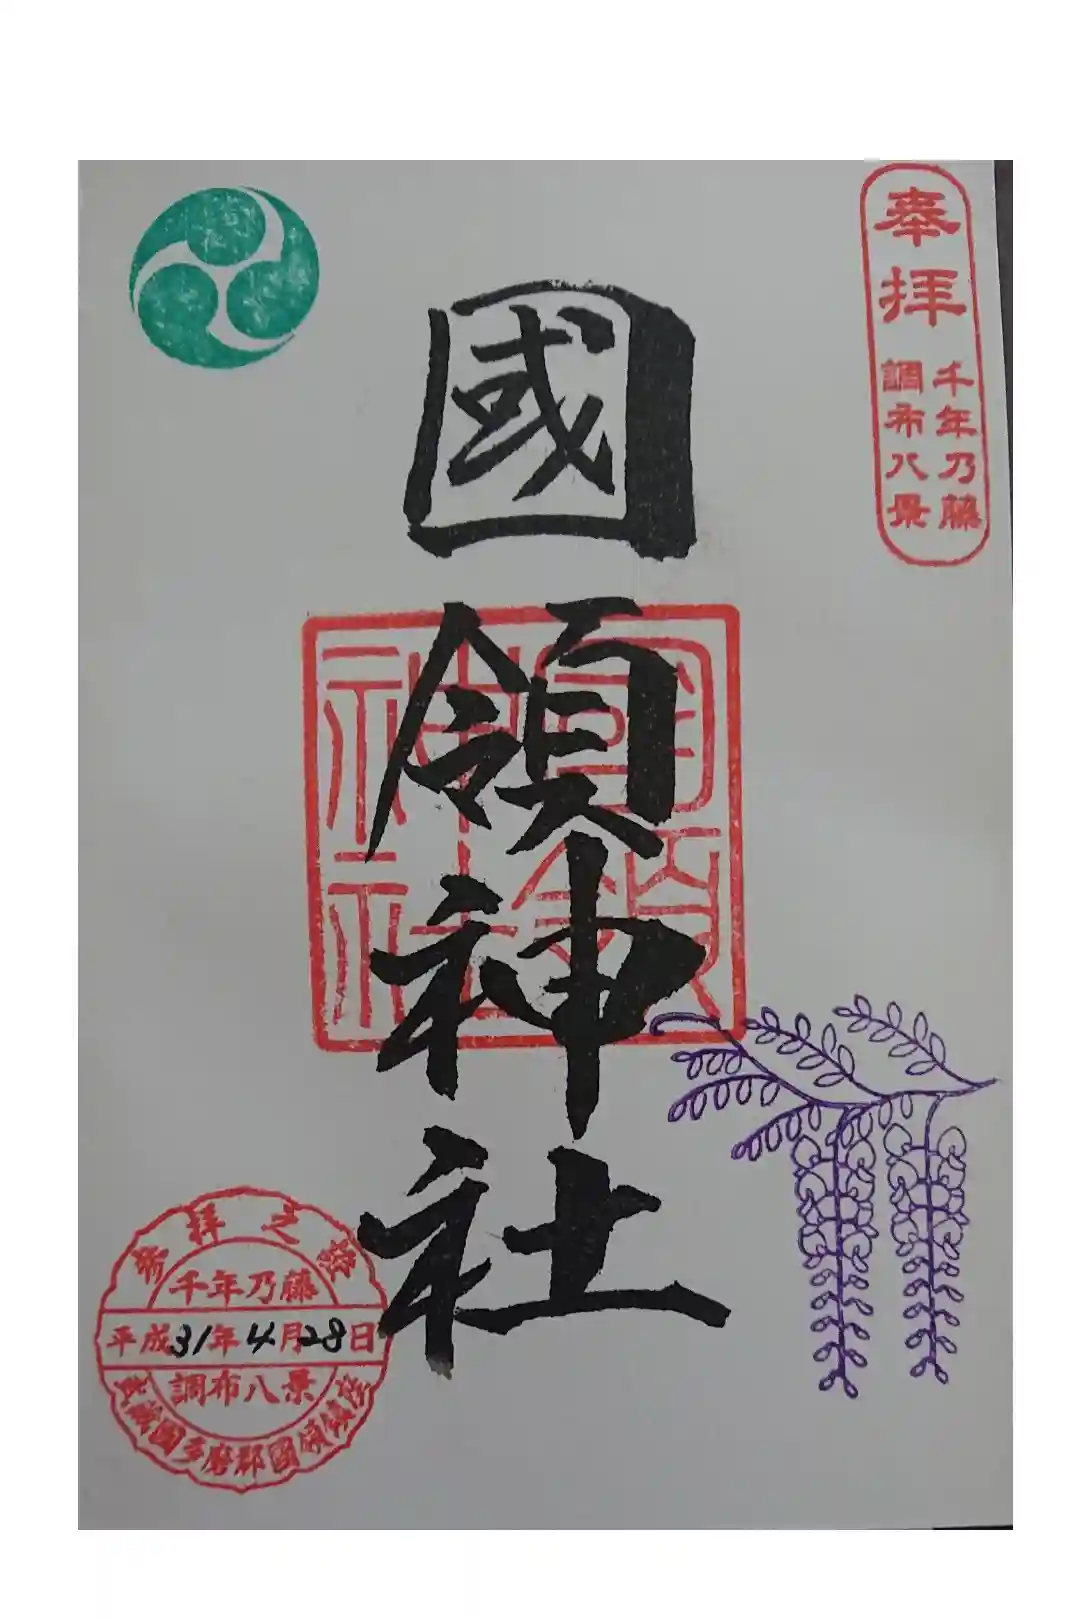 奉拝
千年乃藤
調布八景
國領神社
國領
神社
参拝之證
千年乃藤
平成31年4月28日
調布八景
武蔵國多磨郡國領鎮座